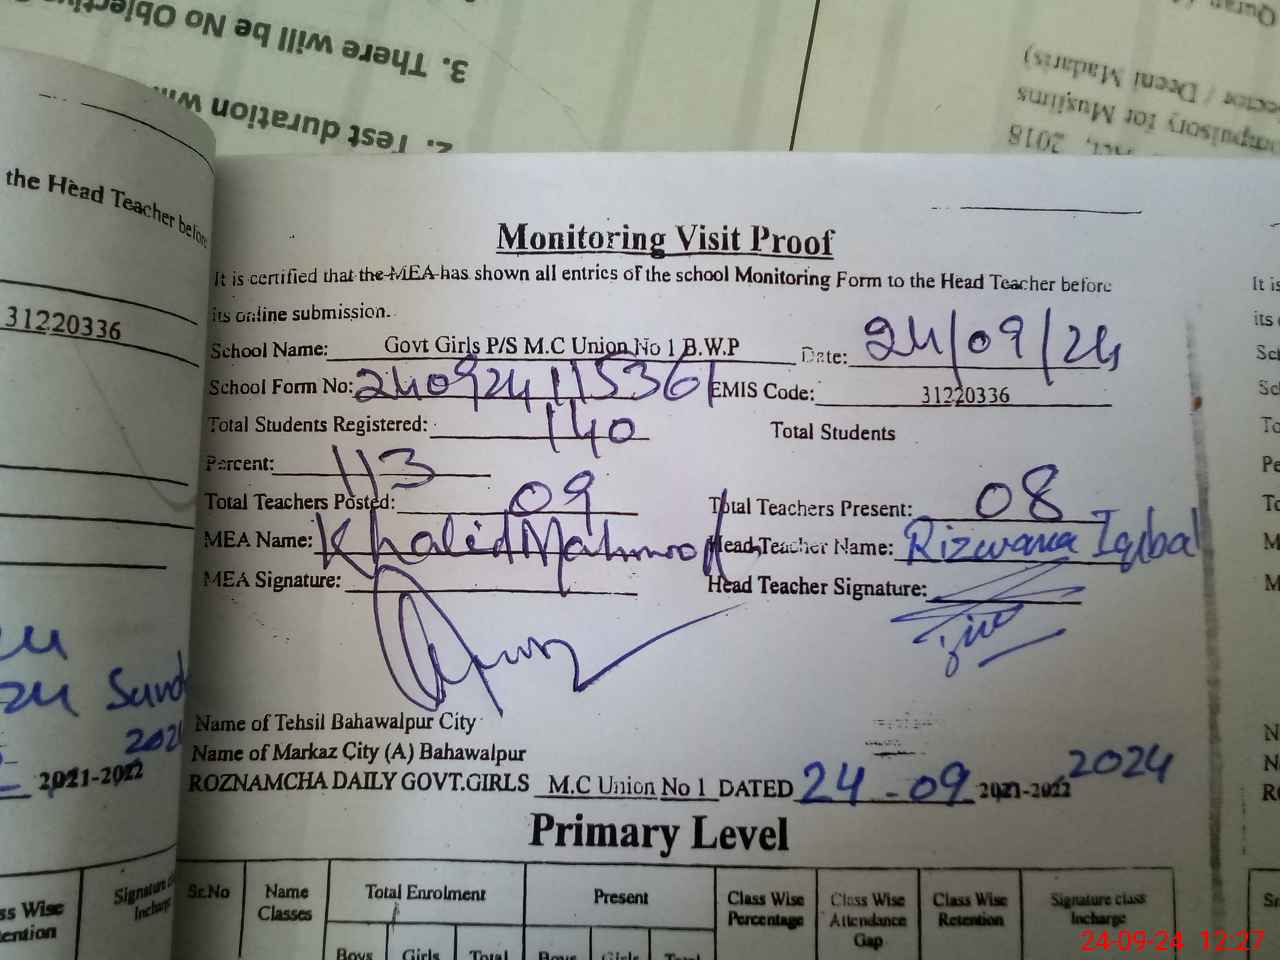 3. There will be No Objectiv
2. Test duration w
Quran
ector / Deeni Madaris)
mpulsory for Muslims
Act, 2018
the Head Teacher before
31220336
Sund
2024
2021-2022
ss Wise
ention
Signature c
Incharg
Monitoring Visit Proof
It is certified that the MEA has shown all entries of the school Monitoring Form to the Head Teacher before
its online submission.
School Name: Govt Girls P/S M.C Union No 1 B.W.P Date: 24/09/24
School Form No: 240924115361 EMIS Code: 31220336
Total Students Registered: 140 Total Students
Percent: 113
Total Teachers Posted: 09 Total Teachers Present: 08
MEA Name: Khalid Mahmood Head Teacher Name: Rizwana Iqbal
MEA Signature: Head Teacher Signature:
Name of Tehsil Bahawalpur City
Name of Markaz City (A) Bahawalpur
ROZNAMCHA DAILY GOVT.GIRLS M.C Union No 1 DATED 24-09 2021-2022 2024
Primary Level
Sr.No Name Classes Total Enrolment Present Class Wise Percentage Class Wise Attendance Gap Class Wise Retention Signature class Incharge
Boys Girls Total Boys Girls Total
It is
its
Sc
Sc
To
Pe
To
M
M
N
N
RO
Sr
24-09-24 12:27